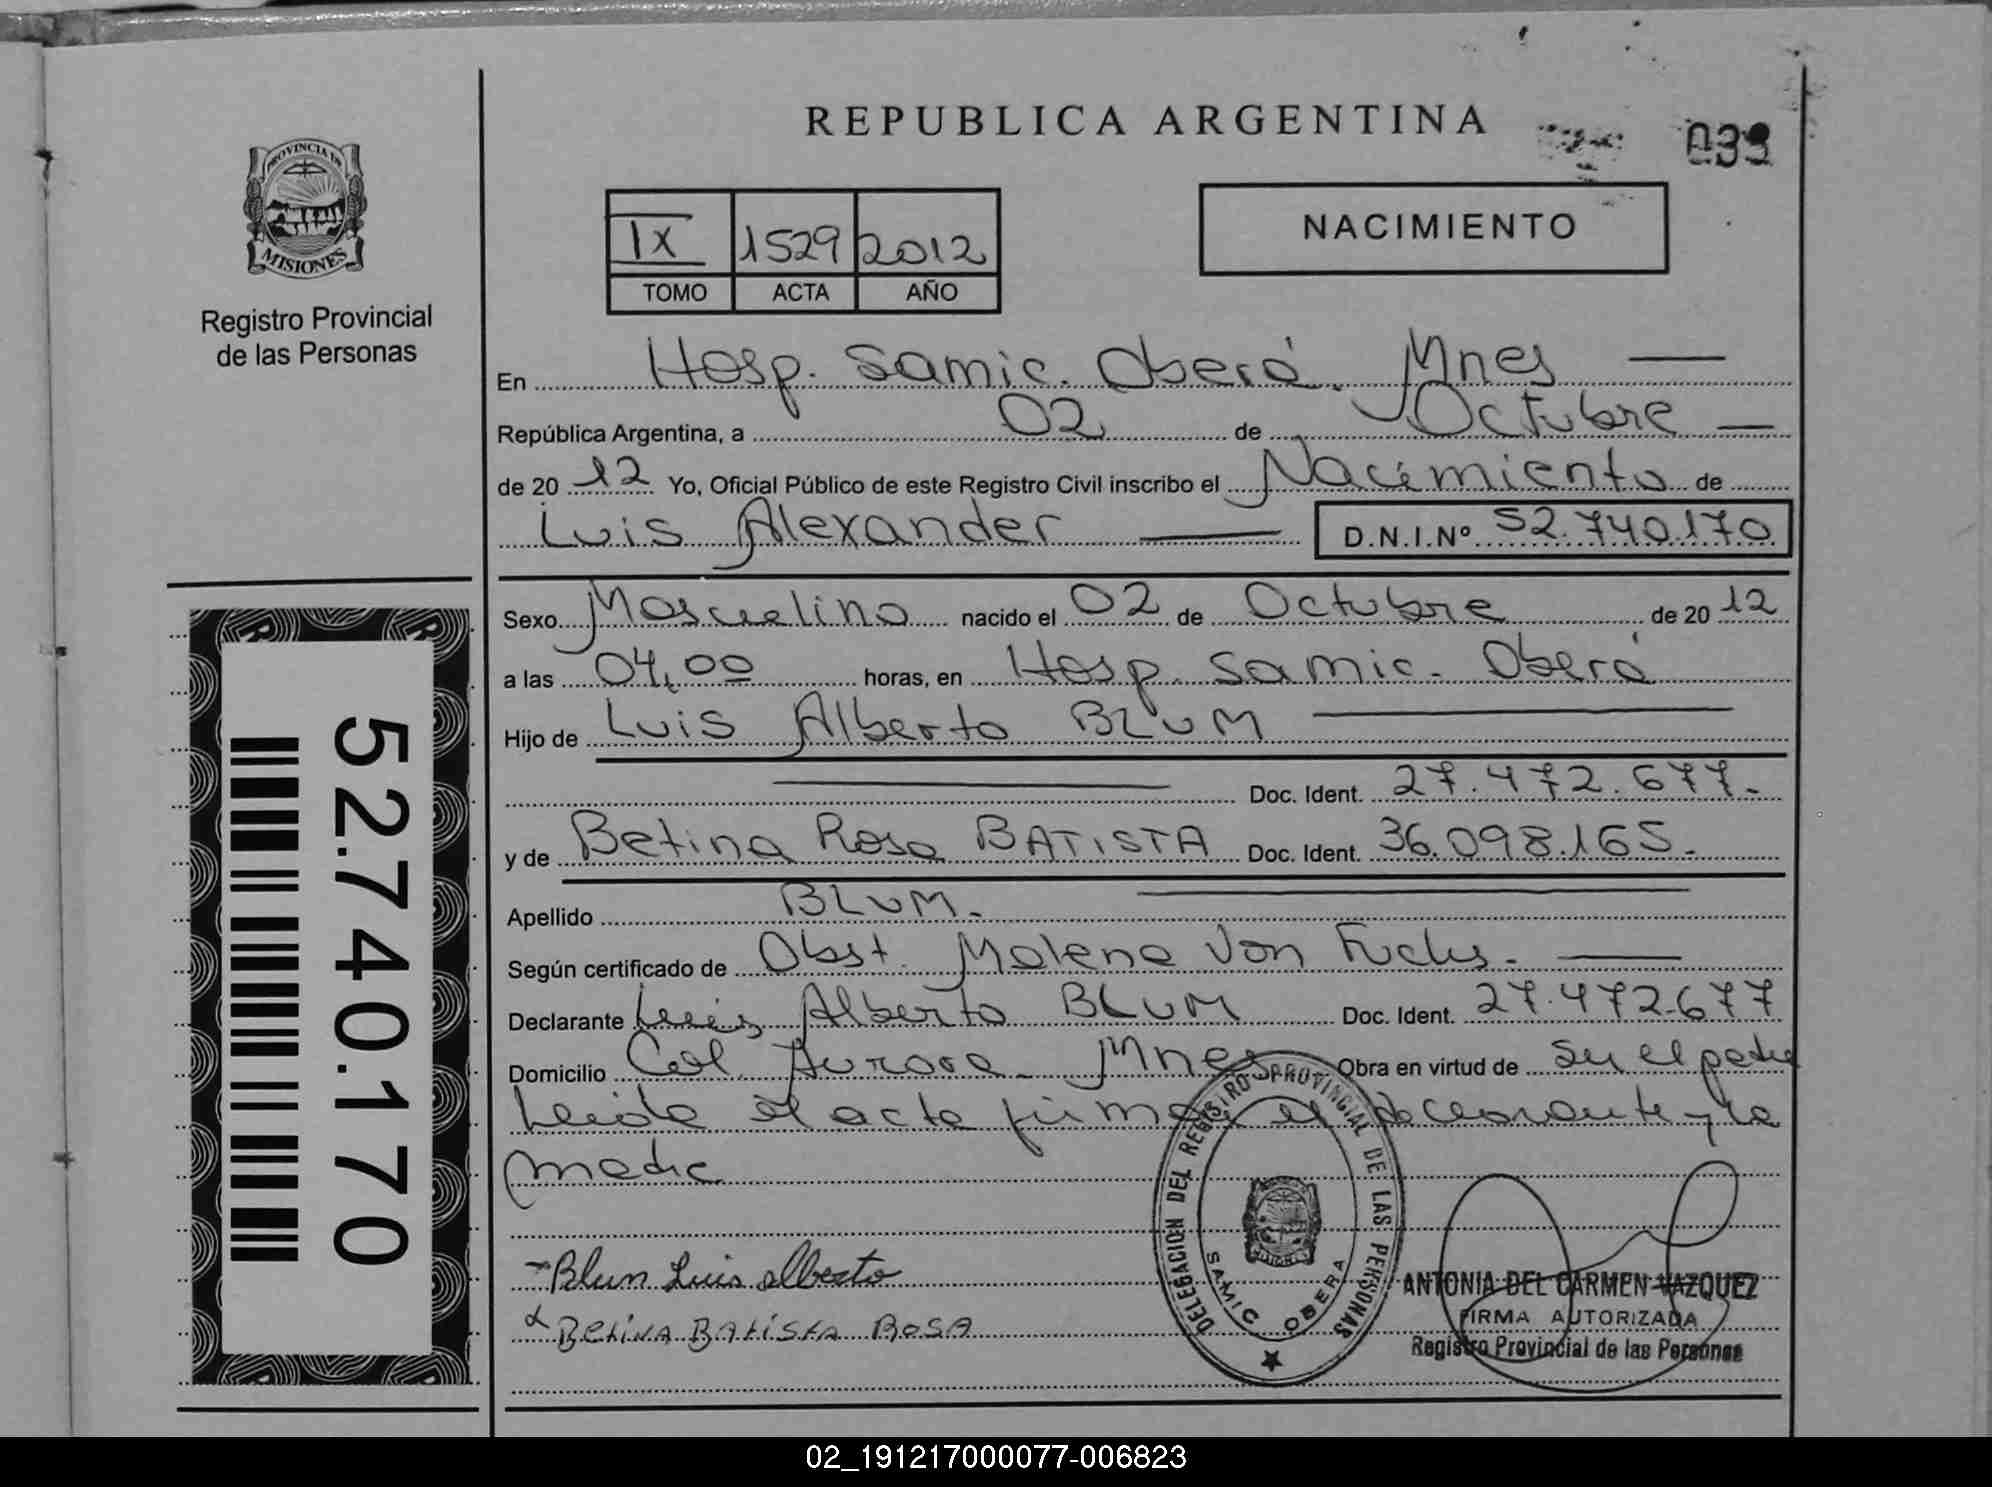 REPUBLICA ARGENTINA
039
PROVINCIA DE
MISIONES
Registro Provincial
de las Personas
IX 1529 2012
TOMO ACTA AÑO
NACIMIENTO
En Hosp. Samic. Oberá. Mnes
República Argentina, a 02 de Octubre
de 20 12 Yo, Oficial Público de este Registro Civil inscribo el Nacimiento de
Luis Alexander D.N.I.Nº 52.740.170
Sexo Masculino nacido el 02 de Octubre de 20 12
a las 04,00 horas, en Hosp. Samic. Oberá
Hijo de Luis Alberto BLUM
Doc. Ident. 27.472.677.
y de Betina Rosa BATISTA Doc. Ident. 36.098.165.
Apellido BLUM.
Según certificado de Obst. Malena Von Fuchs.
Declarante Luis Alberto BLUM Doc. Ident. 27.472.677
Domicilio Col. Aurora. Mnes Obra en virtud de Ser el padre
Leida el acta firma el declarante y la
madre
Blum Luis Alberto
Betina Batista Rosa
DELEGACION DEL REGISTRO PROVINCIAL DE LAS PERSONAS
SAMIC OBERA
ANTONIA DEL CARMEN VAZQUEZ
FIRMA AUTORIZADA
Registro Provincial de las Personas
52.740.170
02_191217000077-006823